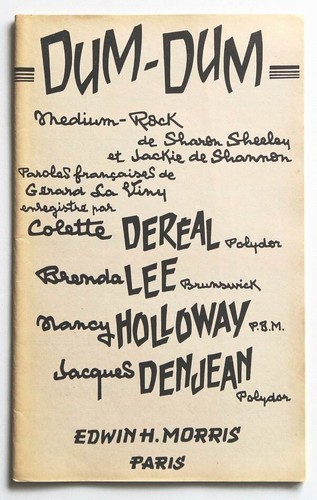 DUM-DUM
Medium-Rock
de Sharon Sheeley
et Jackie de Shannon
Paroles françaises de
Gérard La Viny
enregistré par
Colette DERÉAL Polydor
Brenda LEE Brunswick
Nancy HOLLOWAY P.B.M.
Jacques DENJEAN
Polydor
EDWIN H. MORRIS
PARIS